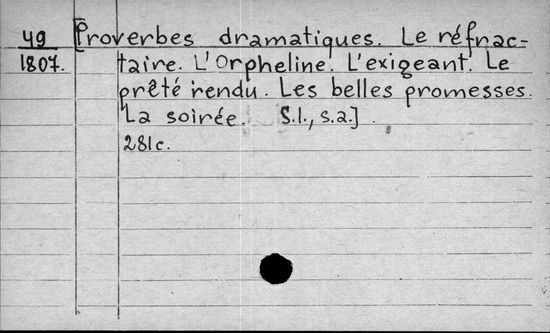 49 [Proverbes dramatiques. Le réfrac-
1807. taire. L'Orpheline. L'exigeant. Le
prêté rendu. Les belles promesses.
La soirée. S.l., s.a.]
281c.